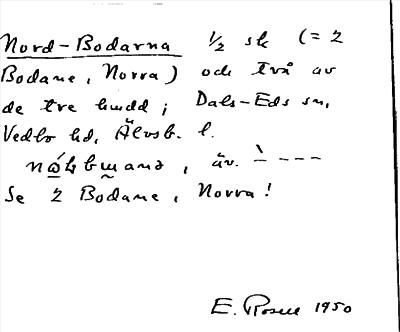 Nord-Bodarna ½ sk (= 2
Bodane, Norra) och två av
de tre hmdd i Dals-Eds sn,
Vedbo hd, Älvsb. l.
, äv. `- - - -
Se 2 Bodane, Norra!
E. Rosell 1950